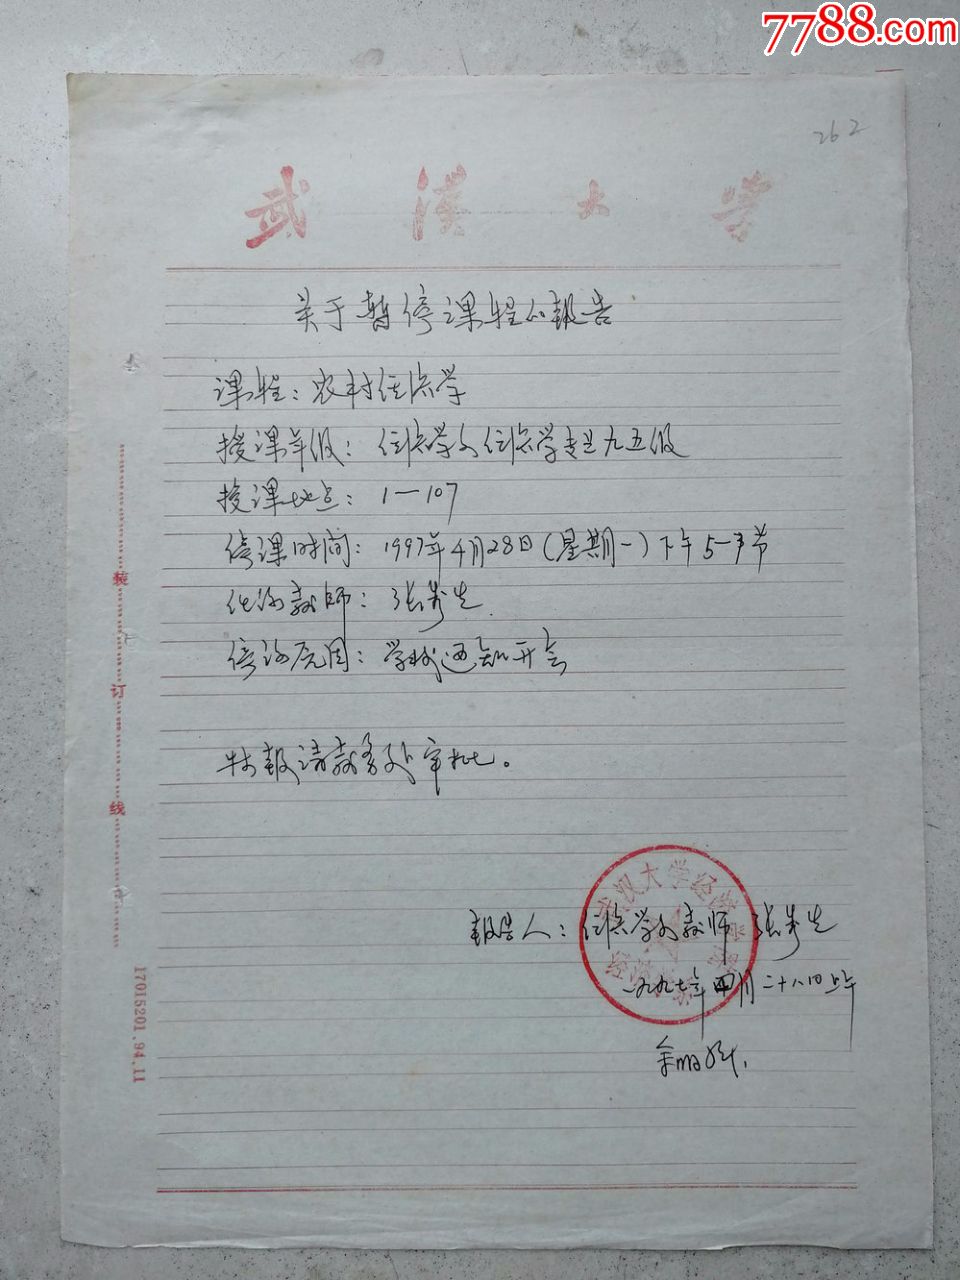 7788.com
262
武漢大学
关于暂停课程的报告
课程：农村经济学
授课年级：经济学系经济学专业九五级
授课地点：1—107
停课时间：1997年4月28日(星期一)下午5—7节
任课教师：张秀生
停课原因：学校通知开会
特报请教务处审批。
武汉大学经济学院
经济学系
报告人：经济学系教师 张秀生
一九九七年四月二十八日上午
装
订
线
17015201.94.11